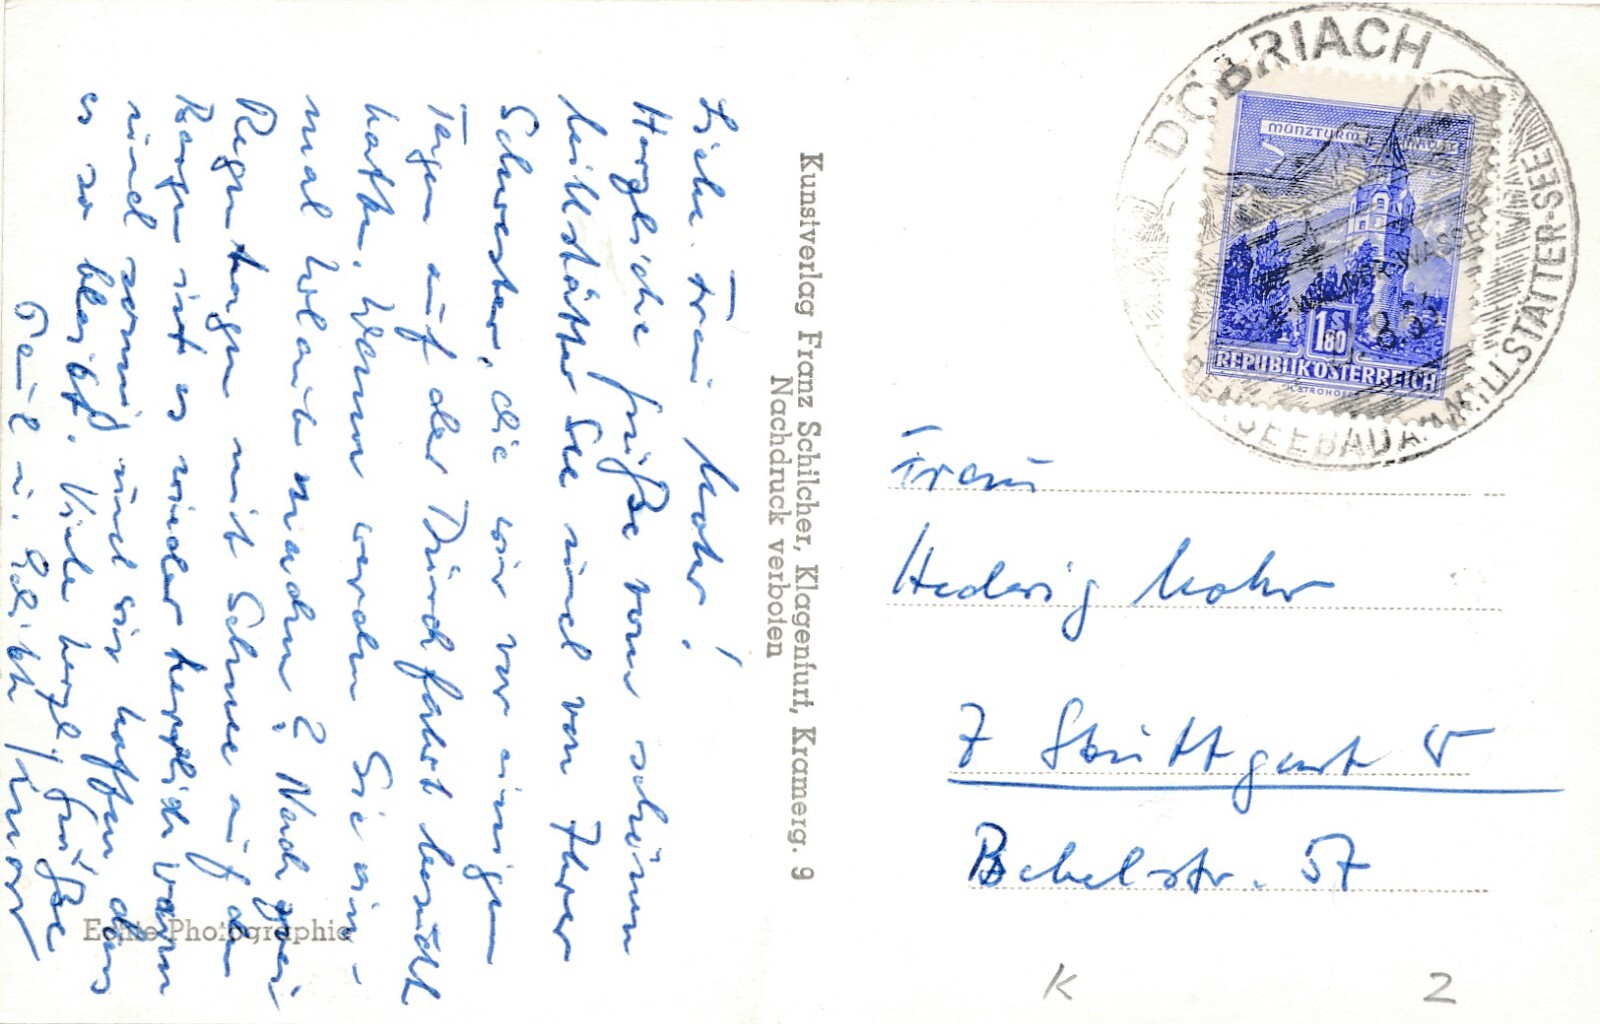 Liebe Frau Mohr!
Herzliche Grüße vom schönen
Millstätter See und von Ihrer
Schwester, die wir vor einigen
Tagen auf der Durchfahrt besucht
hatten. Wann werden Sie ein-
mal Urlaub machen? Nach zwei
Regentagen mit Schnee auf den
Bergen ist es wieder herrlich warm
und sonnig und wir hoffen dass
es so bleibt. Viele herzl. Grüße
Paul u. Edith
Echte Photographie
Kunstverlag Franz Schilcher, Klagenfurt, Kramerg. 9
Nachdruck verboten
DÖBRIACH
MILLSTÄTTER-SEE
SEEBAD AM
MÜNZTURM
1.80
S
REPUBLIK ÖSTERREICH
Frau
Hedwig Mohr
7 Stuttgart
Bebelstr. 57
K
Z